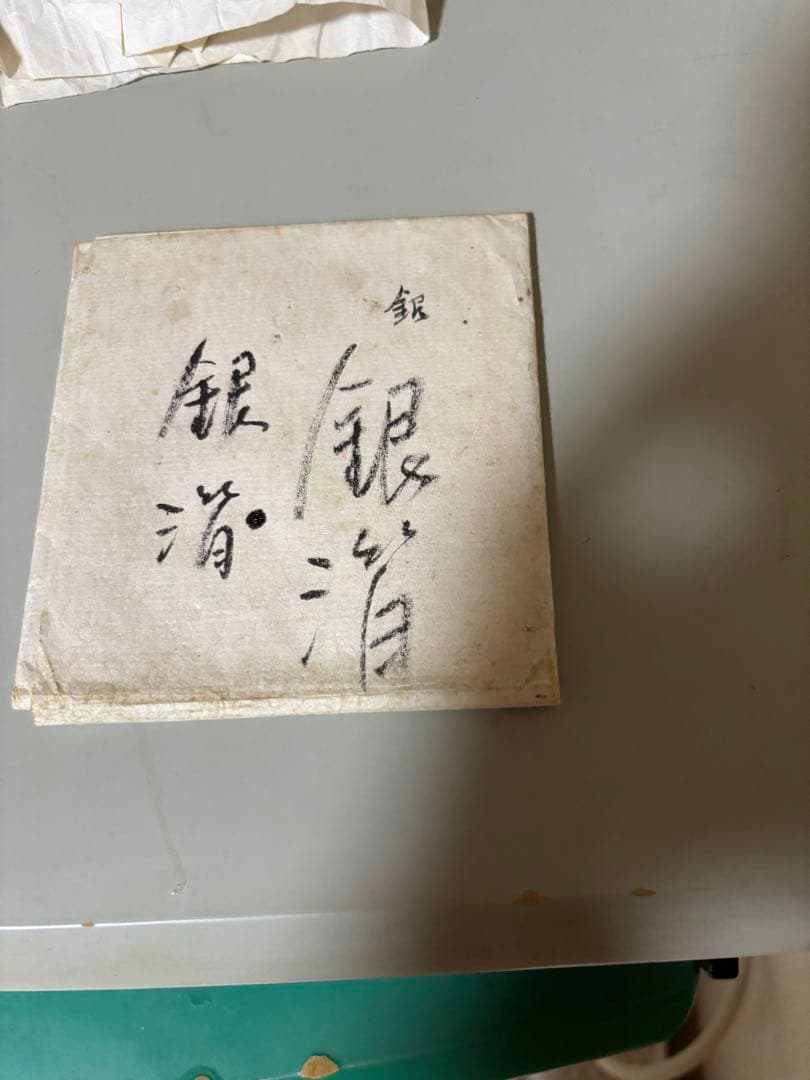 銀
銀消
銀消